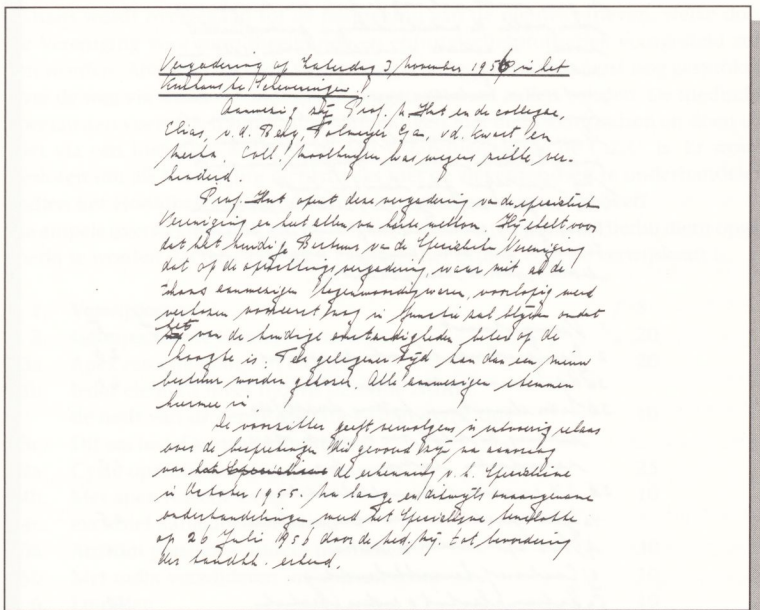 Vergadering op Zaterdag 3 November 1956 in het
Kurhaus te Scheveningen.
Aanwezig zijn Prof. Hut en de collegae,
Elias, v.d. Berg, Tolmeyer, v.d. Kwast en
Coll. was wegens ziekte ver-
hinderd.
Prof. Hut opent deze vergadering van de specialisten
Vereniging en heet allen van harte welkom. Hij stelt voor
dat het huidige Bestuur van de Specialisten Vereniging
dat op de oprichtingsvergadering, waar niet al de
thans aanwezigen tegenwoordig waren, voorlopig werd
verkozen vooreerst nog in functie zal blijven omdat
het van de huidige omstandigheden beter op de
hoogte is. Ter gelegener tijd kan dan een nieuw
bestuur worden gekozen. Alle aanwezigen stemmen
hiermee in.
De voorzitter geeft vervolgens een uitvoerig relaas
over de besprekingen die gevoerd zijn na aanvraag
van de erkenning v.h. Specialisme
in October 1955. Na lange en dikwijls onaangename
onderhandelingen werd het Specialisme tenslotte
op 26 Juli 1956 door de Ned. Mij. tot bevordering
der tandhk. erkend.